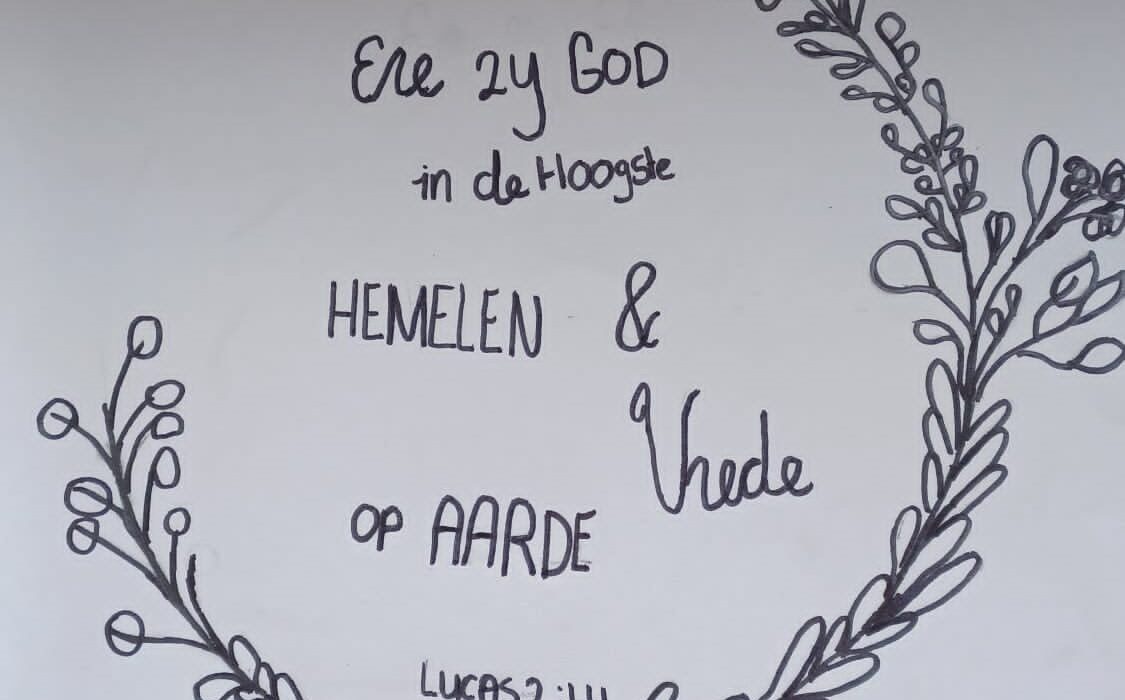 Ere zy GOD
in de Hoogste
HEMELEN &
Vrede
OP AARDE
LUCAS 2:14